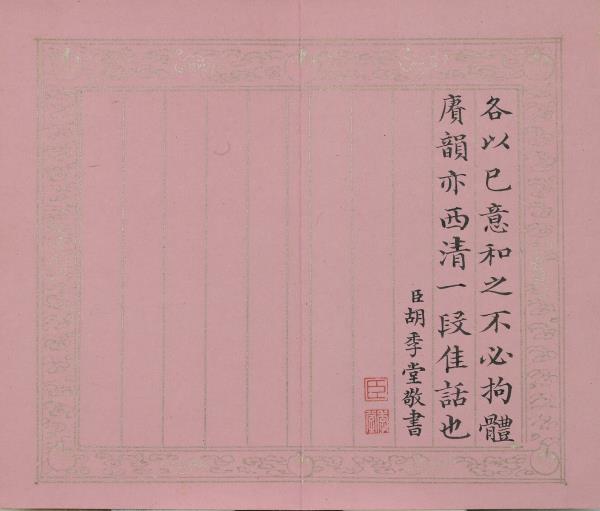 各以已意和之不必拘體
賡韻亦西清一段佳話也
臣胡季堂敬書
臣
季堂